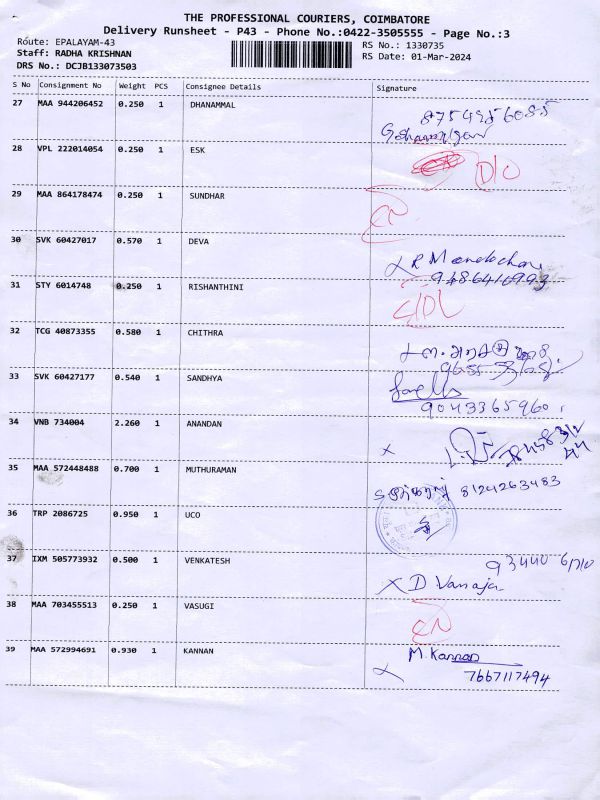 THE PROFESSIONAL COURIERS, COIMBATORE
Delivery Runsheet - P43 - Phone No.:0422-3505555 - Page No.:3
Route: EPALAYAM-43
Staff: RADHA KRISHNAN
DRS No.: DCJB133073503
RS No.: 1330735
RS Date: 01-Mar-2024
S No Consignment No Weight PCS Consignee Details Signature
27 MAA 944206452 0.250 1 DHANAMMAL
28 VPL 222014054 0.250 1 ESK D/O
29 MAA 864178474 0.250 1 SUNDHAR
30 SVK 60427017 0.570 1 DEVA
31 STY 6014748 0.250 1 RISHANTHINI
32 TCG 40873355 0.580 1 CHITHRA
33 SVK 60427177 0.540 1 SANDHYA
9043365960
34 VNB 734004 2.260 1 ANANDAN
35 MAA 572448488 0.700 1 MUTHURAMAN
8124263483
36 TRP 2086725 0.950 1 UCO
37 IXM 505773932 0.500 1 VENKATESH
D Vanaja
38 MAA 703455513 0.250 1 VASUGI
39 MAA 572994691 0.930 1 KANNAN M. Kannan
7667117494